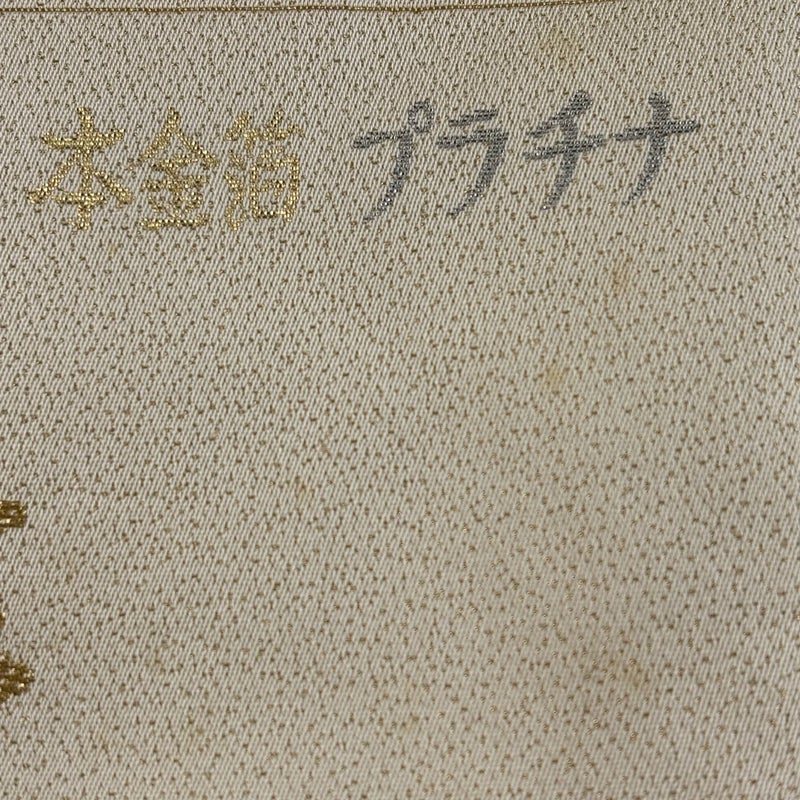 本金箔 プラチナ